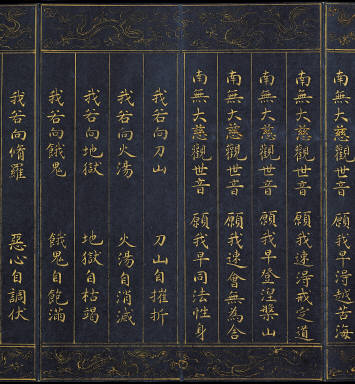 南無大慈觀世音　願我早得越苦海
南無大慈觀世音　願我速得戒定道
南無大慈觀世音　願我早登涅槃山
南無大慈觀世音　願我速會無為舍
南無大慈觀世音　願我早同法性身
我若向刀山　刀山自摧折
我若向火湯　火湯自消滅
我若向地獄　地獄自枯竭
我若向餓鬼　餓鬼自飽滿
我若向脩羅　惡心自調伏